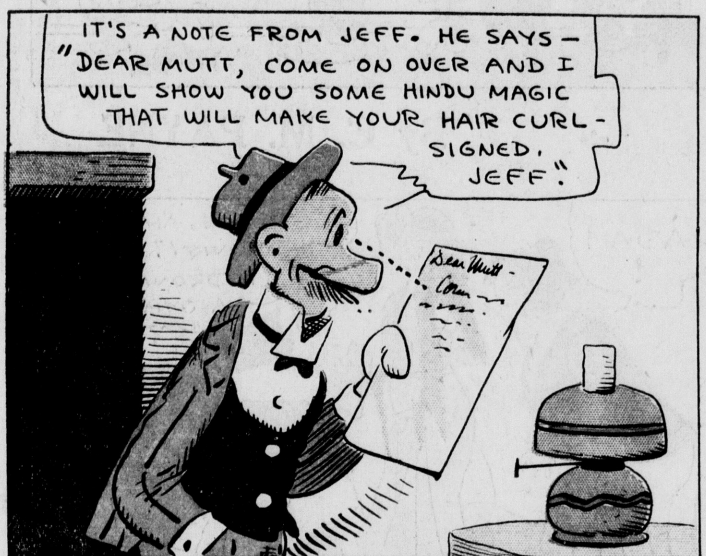 IT'S A NOTE FROM JEFF. HE SAYS —
"DEAR MUTT, COME ON OVER AND I
WILL SHOW YOU SOME HINDU MAGIC
THAT WILL MAKE YOUR HAIR CURL -
SIGNED.
JEFF."
Dear Mutt -
Come